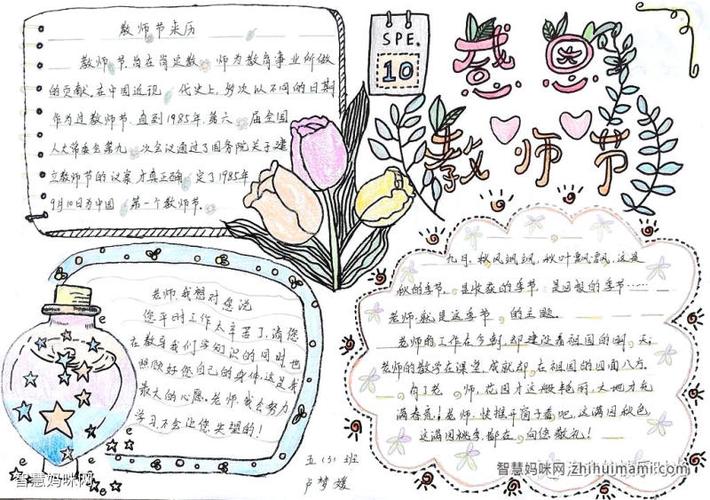 教师节来历
教师节,旨在肯定教师为教育事业所做
的贡献。在中国近现代史上,多次以不同的日期
作为过教师节。直到1985年,第六届全国
人大常委会第九次会议通过了国务院关于建
立教师节的议案,才真正确定了1985年
9月10日为中国第一个教师节。
SPE.
10
感恩
教师节
老师,我想对您说
您平时工作太辛苦了,请您
在教导我们学知识的同时也
照顾好您自己的身体,这是我
最大的心愿。老师,我会努力
学习,不会让您失望的!
五(3)班
卢梦媛
九月,秋风飒飒,秋叶飘飘,这是
秋的季节,是收获的季节,是回报的季节……
老师就是这季节的主题。
老师的工作在今朝,却建设着祖国的明天;
老师的教学在课堂,成就却在祖国的四面八方。
有了老师,花园才这般艳丽,大地才充
满春意!老师,快推开窗子看吧,这满园秋色
这满园桃李,都在向您敬礼!
智慧妈咪网
智慧妈咪网 zhihuimami.com